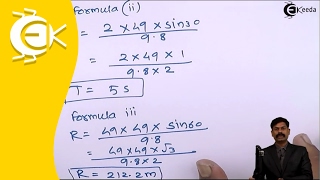 Ekeeda
formula (ii)
= 2 × 49 × sin30
9.8
= 2 × 49 × 1
9.8 × 2
T = 5s
formula iii
R = 49 × 49 × sin60
9.8
= 49 × 49 × √3
9.8 × 2
R = 212.2m